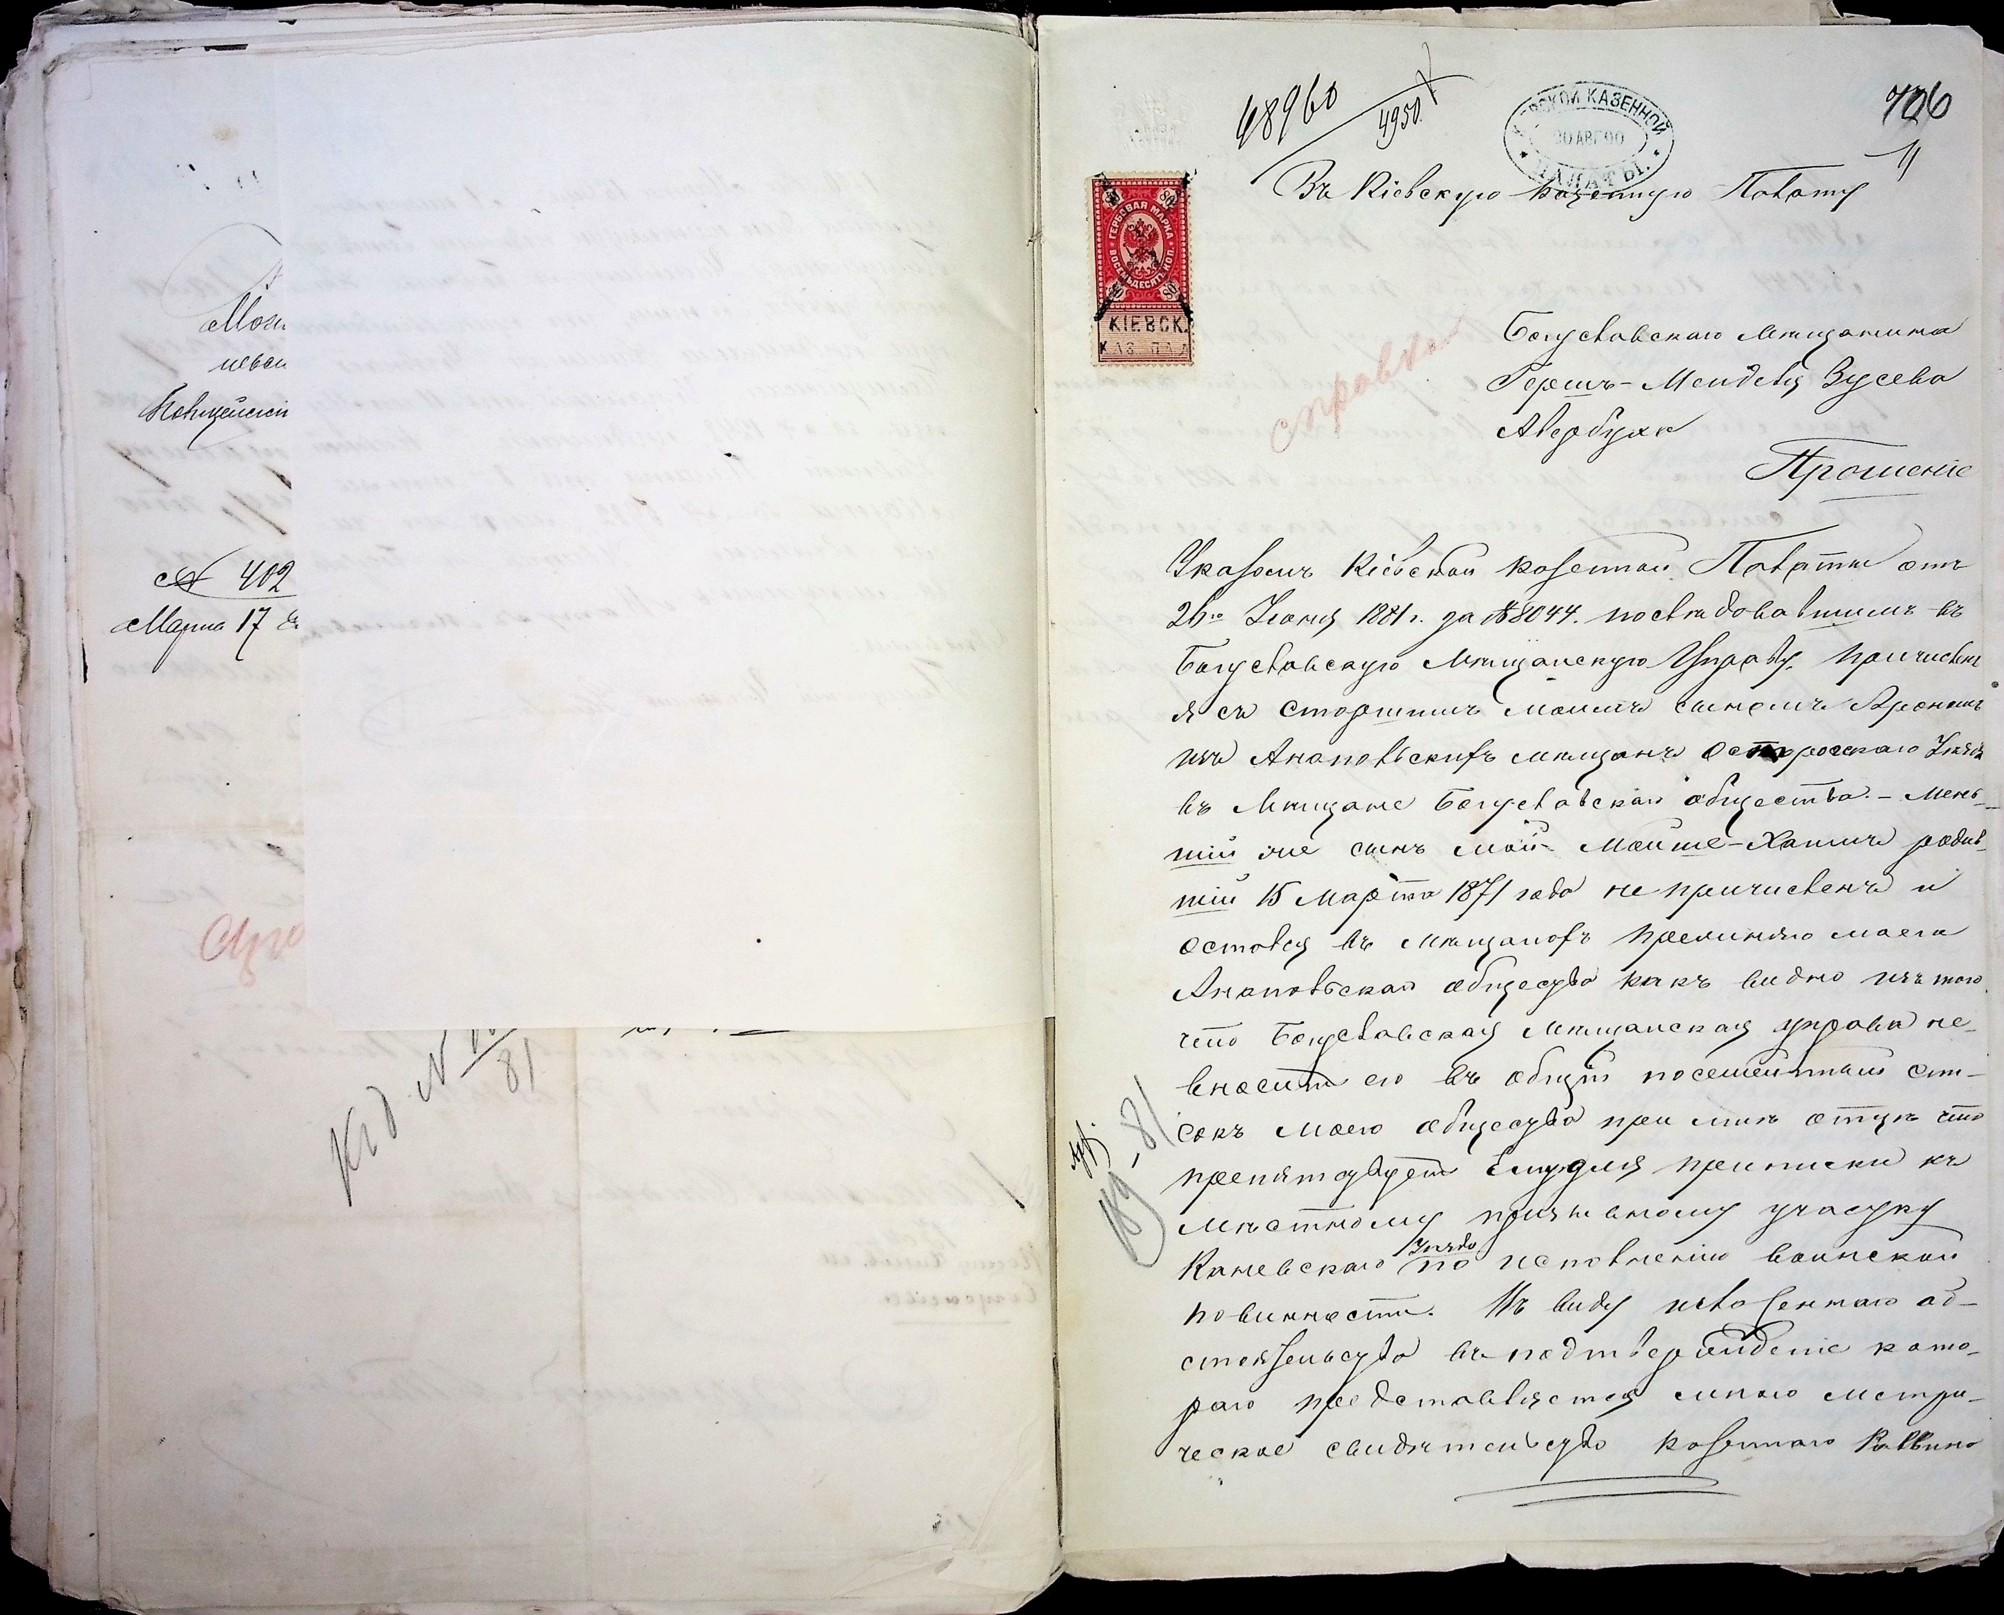 Мош
невск
Полицейскій
№ 402
Марта 17
Спра
К д. N
81
48960
4950
КІЕВСКОЙ КАЗЕННОЙ
30 АВГ. 90
ПАЛАТЫ.
706
Въ Кіевскую Казенную Палату
80 80
ГЕРБОВАЯ МАРКА
ВОСЕМЬДЕСЯТЪ КОП.
80 80
КІЕВСК.
КАЗ. ПАЛ
справка
Богуславскаго Мѣщанина
Гершъ-Менделя Зусева
Авербуха
Прошеніе
Указомъ Кіевской Казенной Палаты отъ
26го Іюня 1881 г. за №8044. послѣдовавшимъ въ
Богуславскую Мѣщанскую Управу, причислен
я съ старшимъ моимъ сыномъ Арономъ
изъ Аннопольскихъ мѣщанъ Острогскаго Уѣзда
въ Мѣщане Богуславскаго общества. – Мень-
шій же сынъ мой Мойше-Хаимъ родив-
шій 15 Марта 1871 года не причисленъ и
остался въ мѣщанахъ прежняго моего
Аннопольскаго общества какъ видно изъ того
что Богуславская Мѣщанская управа не-
вноситъ его въ общій посемейный спи-
сокъ моего общества при мнѣ отцѣ что
препятствуетъ Ему для приписки къ
мѣстному призывному участку
Каневскаго Уѣзда по исполненію воинской
повинности. Въ виду изложеннаго об-
стоятельства въ подтвержденіе кото-
раго представляется мною метри-
ческое свидѣтельство Казеннаго Раввина
189-81